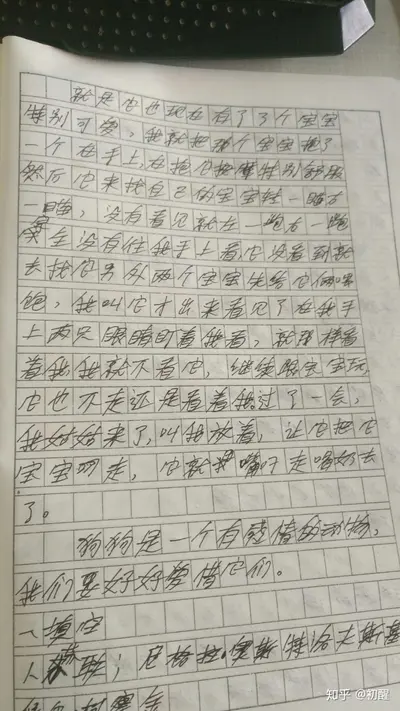 就是它也现在有了3个宝宝
特别可爱，我就把那个宝宝抱了
一个在手上，在抱它按摩特别舒服
然后它来找自己的宝宝转一瞄右
一瞄，没有看见就左一跑右一跑
完全没有往我手上看它没看到就
去找它另外两个宝宝先给它俩喂
饱，我叫它才出来看见了在我手
上两只眼睛盯着我看，就那样看
着我我就不看它，继续跟宝宝玩
它也不走还是看着我过了一会，
我姑姑来了，叫我放着，让它把它
宝宝叼走，它就用嘴叼走喂奶去
了。
狗狗是一个有感情的动物，
我们要好好爱惜它们。
一填空
人联；尼格拉·奥斯特洛夫斯基